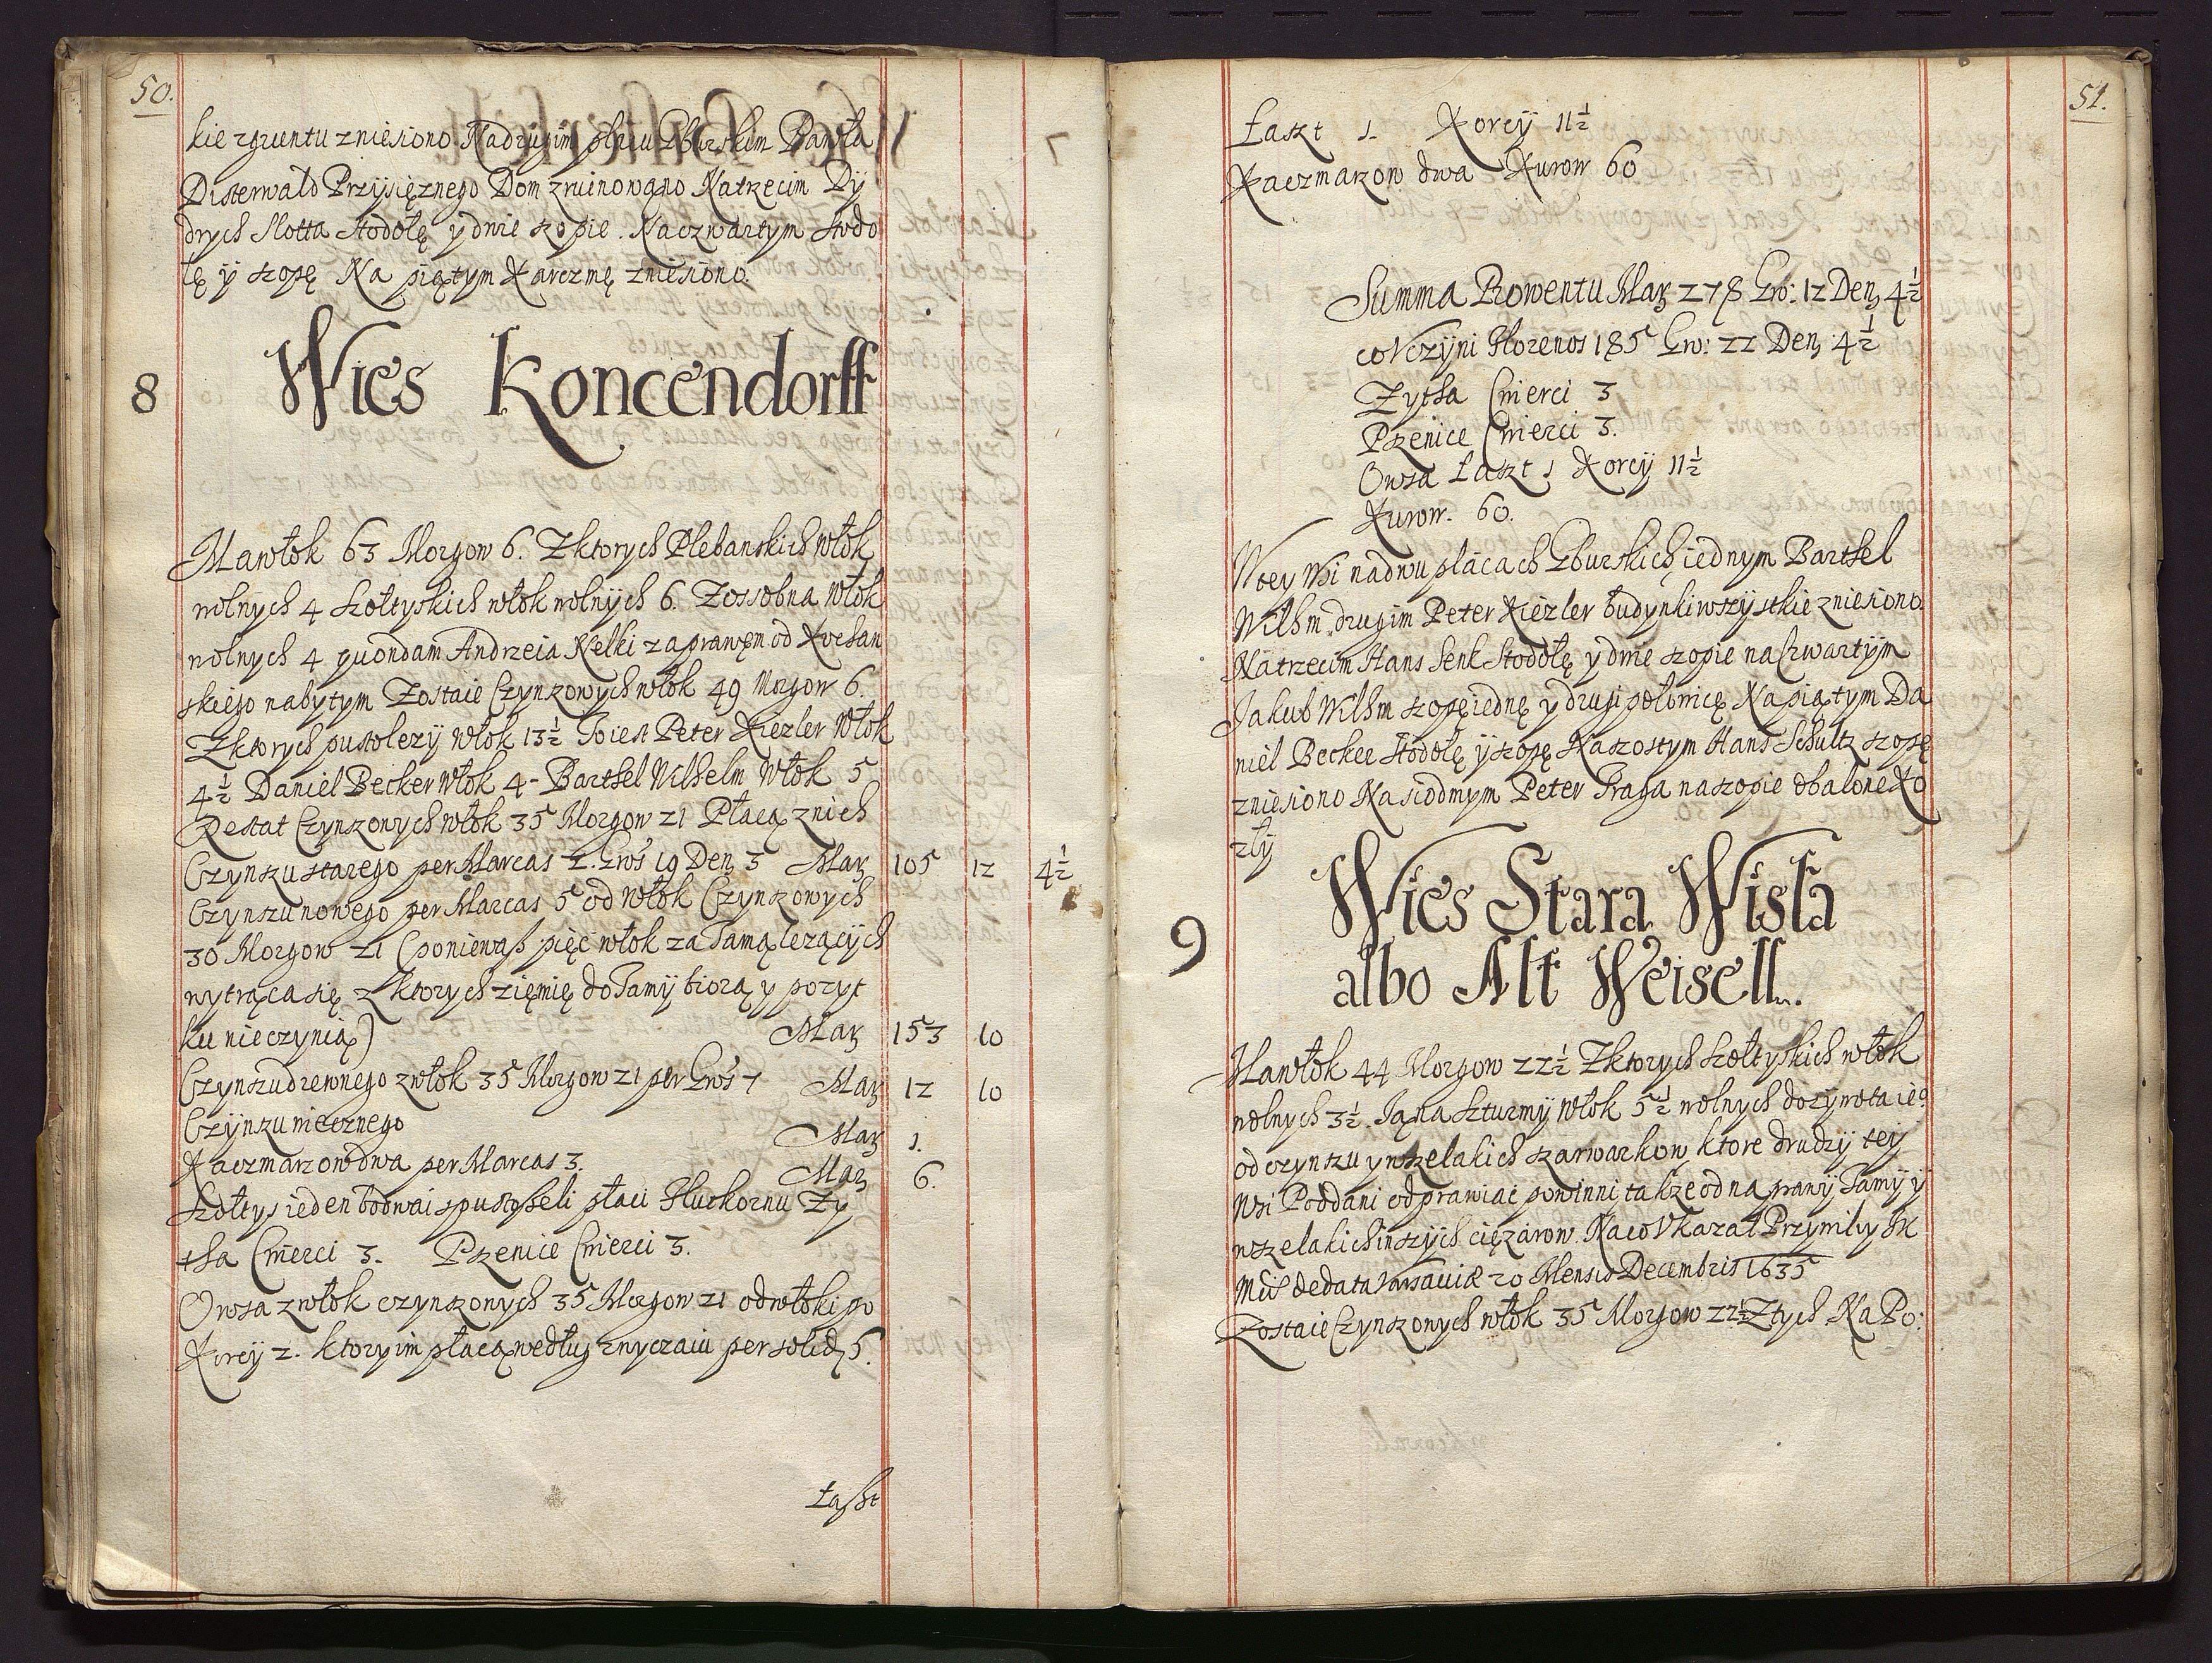 50.
kie zgruntu zniesiono Nadrugim placu Gburskim Pawła
Disterwald Przysięznego Dom zruinowąno Natrzecim Dÿ
drych Slotta Stodołę y dwie szopie. Naczwartym Stodo
łę ÿ szopę Na piątym Karczmę zniesiono.
8 Wies Koncendorff
Mawłok 63 Morgow 6. Zktorych Plebanskich włok
wolnych 4 Szołtyskich włok wolnÿch 6. Zossobna włok
wolnych 4 quondam Andrzeia Kelki zaprawem od Kochan
skiego nabytym Zostaie Czynszowych włok 49 Morgow 6.
Zktorych pustolezÿ włok 13½ Toiest Peter Kiezler Włok
4½ Daniel Becker Włok 4 - Barthel Wilhelm Włok 5
Restat Czynszowych włok 35 Morgow 21 Płacą znich
Czynszu starego per Marcas 2. Gros 19 Den 3 Mar 105 12 4½
Czynszu nowego per Marcas 5 od włok Czynszowych
30 Morgow 21 (poniewaß pięć włok za Tamą lezącÿch
wytrąca się z ktorych zięmię do Tamÿ biorą y pozyt
ku nie czynią) Mar 153 10
Czynszu drewnego zwłok 35 Morgow 21 per Gros 7 Mar 12 10
Czÿnszu miecznego Mar 1.
Kaczmarzow dwa per Marcas 3. Mar 6.
Szołtys ieden bo dwai spustoßeli płaci Pluckornu Zy
tha Cwierci 3. Pszenice Cwierci 3.
Owsa zwłok czynszowych 35 Morgow 21 od włoki po
Korcy 2. ktory im płacą według zwyczaiu per solid 5.
Łaszt
51.
Łaszt 1. Korcÿ 11½
Kaczmarzow dwa Kurow 60
Summa Prowentu Mar 278 Gro: 12 Den 4½
co Vczÿni Florenos 185 Gro: 22 Den 4½
Zytha Cwierci 3
Pszenice Cwierci 3.
Owsa Łaszt 1 Korcÿ 11½
Kurow. 60.
Wtey Wsi nadwu placach Gburskich iednym Barthel
Wilhm drugim Peter Kiezler budynki wszÿstkie zniesiono.
Natrzecim Hans Senk Stodołę y dwie szopie na Czwartÿm
Jakub Wilhm szopę iednę y drugi połowicę Na piątym Da
niel Becker Stodołę ÿ szopę Naszostym Hans Schultz szopę
zniesiono Na siodmym Peter Praga naszopie obalone Ko
zły
9 Wies Stara Wisła
albo Alt Weisell.
Mawłok 44 Morgow 22½ Zktorych Szołtyskich włok
wolnych 3½. Jąna Szturmÿ Włok 5½ wolnych dozywota ieo
od czynszu y wszelakich szarwarkow ktore drudzÿ teÿ
Wsi Poddani odprawiac powinni także od naprawÿ Tamÿ ÿ
wszelakich inszÿch ciężarow. Naco Vkazał Przywiliy JK
Mći de data Varsaviæ 20 Mensis Decembris 1635
Zostaie Czynszowych włok 35 Morgow 22½ Ztych Na Po: